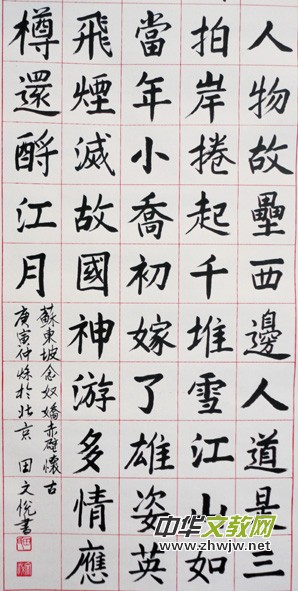 人物故壘西邊人道是三
拍岸捲起千堆雪江山如
當年小喬初嫁了雄姿英
飛煙滅故國神游多情應
樽還酹江月
蘇東坡念奴嬌赤壁懷古
庚寅仲秋於北京 田文悅書
中华文教网
www.zhwjw.net